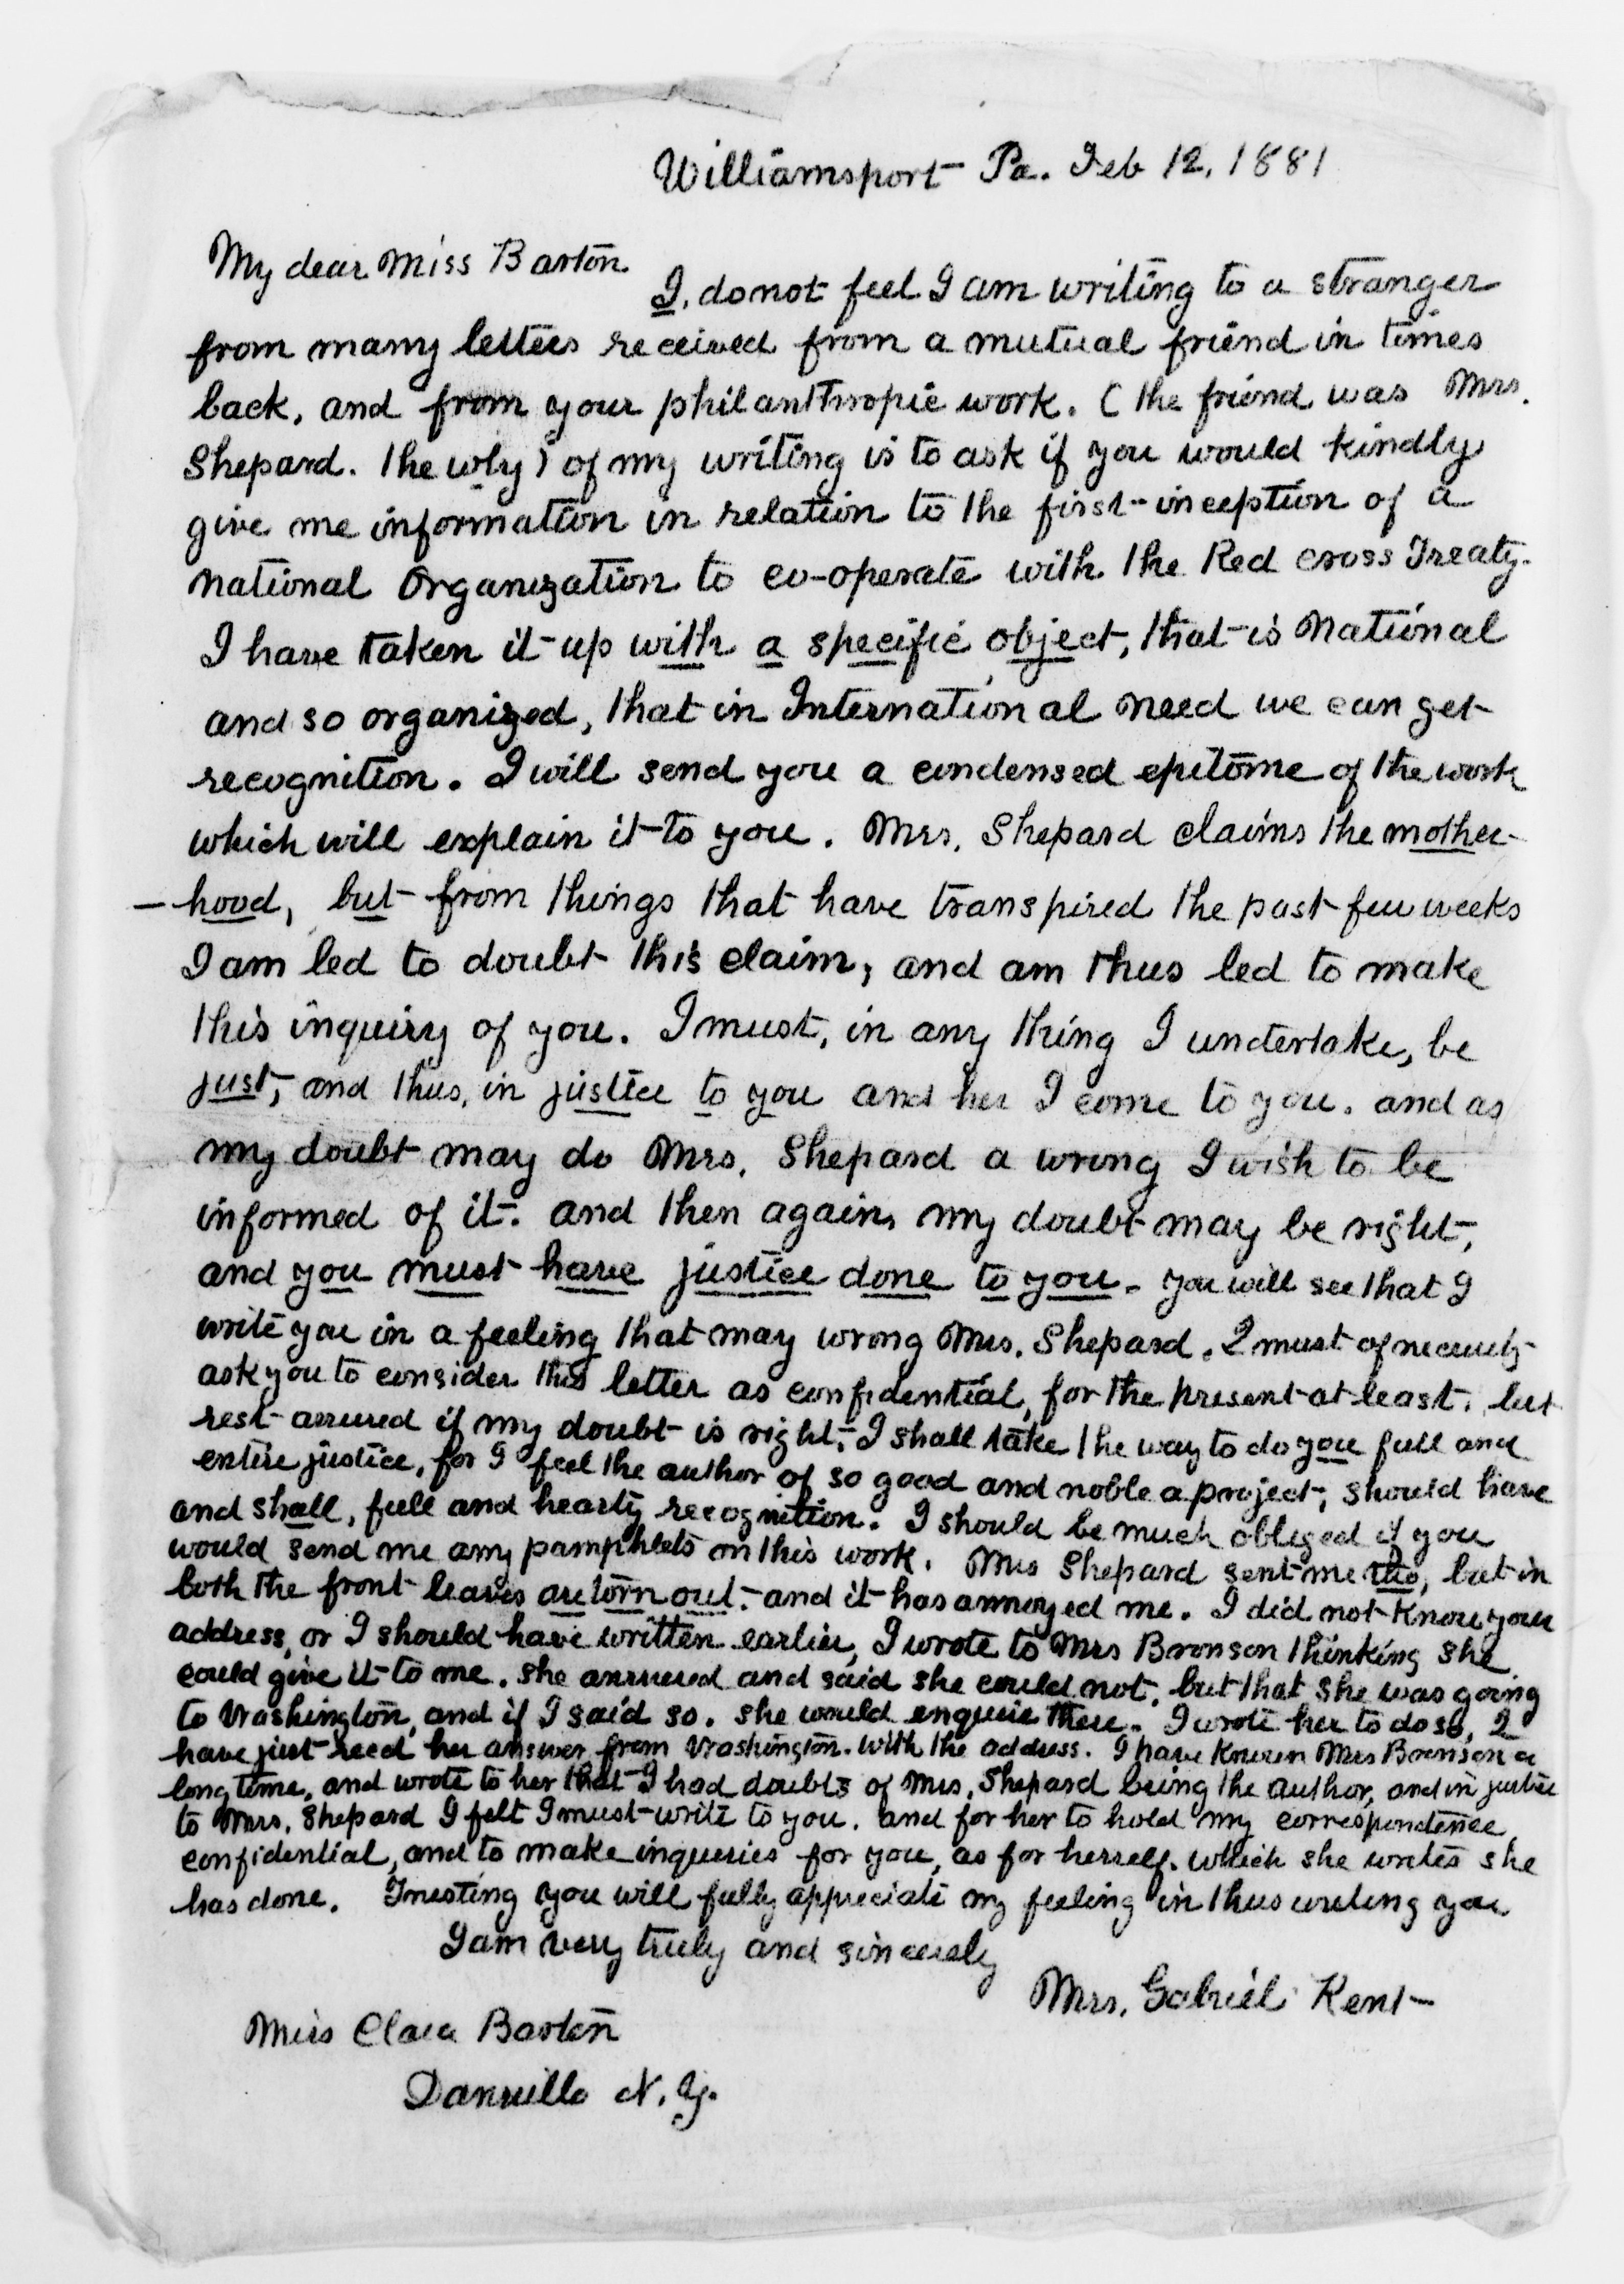 Williamsport Pa. Feb 12, 1881
My dear Miss Barton.
I, do not feel I am writing to a stranger
from many letters received from a mutual friend in times
back, and from your philanthropic work. (the friend was Mrs.
Shepard. the why) of my writing is to ask if you would kindly
give me information in relation to the first inception of a
National Organization to co-operate with the Red Cross Treaty.
I have taken it up with a specific object, that is National
and so organized, that in International need we can get
recognition. I will send you a condensed epitome of the work
which will explain it to you. Mrs. Shepard claims the mother-
-hood, but from things that have transpired the past few weeks
I am led to doubt this claim, and am thus led to make
this inquiry of you. I must, in any thing I undertake, be
just, and thus, in justice to you and her I come to you. and as
my doubt may do Mrs. Shepard a wrong I wish to be
informed of it. and then again, my doubt may be right,
and you must have justice done to you. you will see that I
write you in a feeling that may wrong Mrs. Shepard. I must of necessity
ask you to consider this letter as confidential, for the present at least. but
rest assured if my doubt is right, I shall take the way to do you full and
entire justice, for I feel the author of so good and noble a project, should have
and shall, full and hearty recognition. I should be much obliged if you
would send me any pamphlets on this work. Mrs Shepard sent me two, but in
both the front leaves are torn out. and it has annoyed me. I did not know your
address, or I should have written earlier, I wrote to Mrs Bronson thinking she
could give it to me. she answered and said she could not, but that she was going
to Washington, and if I said so. she would enquire there. I wrote her to do so, I
have just recd her answer from Washington. with the address. I have known Mrs Bronson a
long time, and wrote to her that I had doubts of Mrs. Shepard being the author, and in justice
to Mrs. Shepard I felt I must write to you. and for her to hold my correspondence
confidential, and to make inqueries for you, as for herself. which she writes she
has done. Trusting you will fully appreciate my feeling in thus writing you
I am very truly and sincerely
Mrs. Gabriel Kent
Miss Clara Barton
Dansville N.Y.